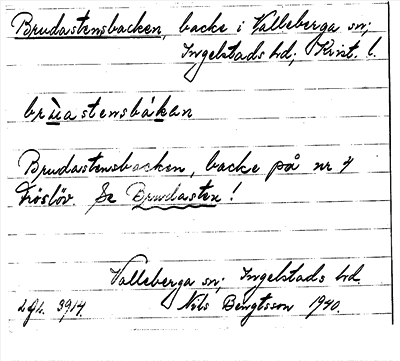 Brudastensbacken, backe i Valleberga sn;
Ingelstads hd, Krist. l.
brùastensbákan
Brudastensbacken, backe på nr 4
Fröslöv. Se Brudasten!
Valleberga sn; Ingelstads hd.
Lgh. 3914. Nils Bengtsson 1940.